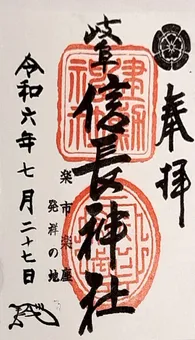 奉拝
岐阜
信長神社
楽市楽座
発祥の地
令和六年七月二十七日